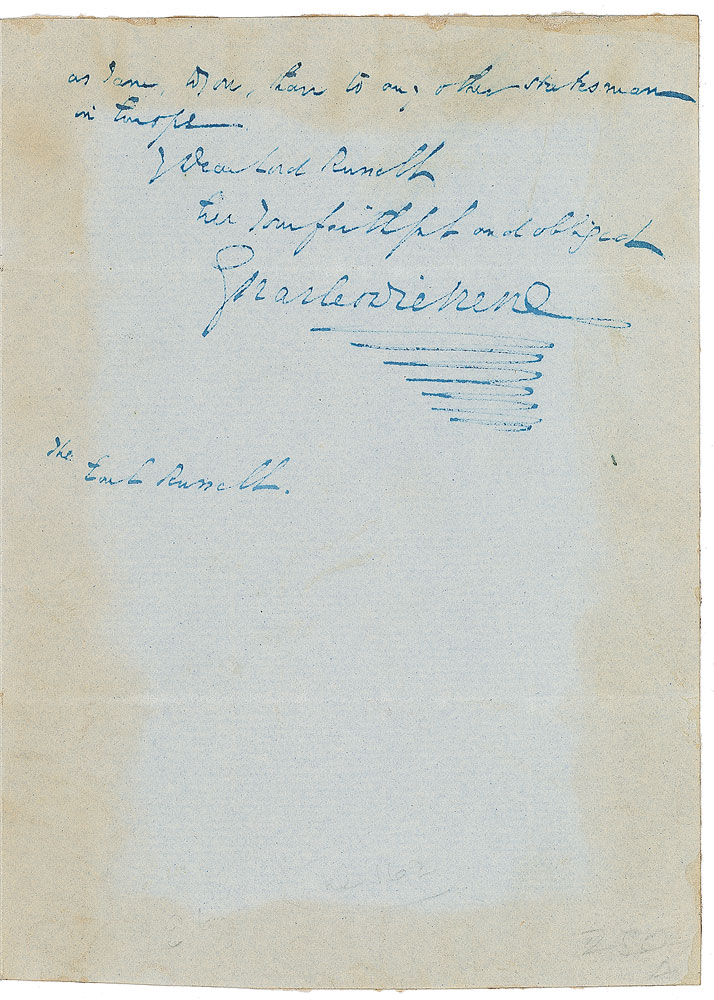 as I am, to you, than to any other statesman
in Europe
My Dear Lord Russell
Ever Your faithful and obliged
Charles Dickens
The
Earl Russell.